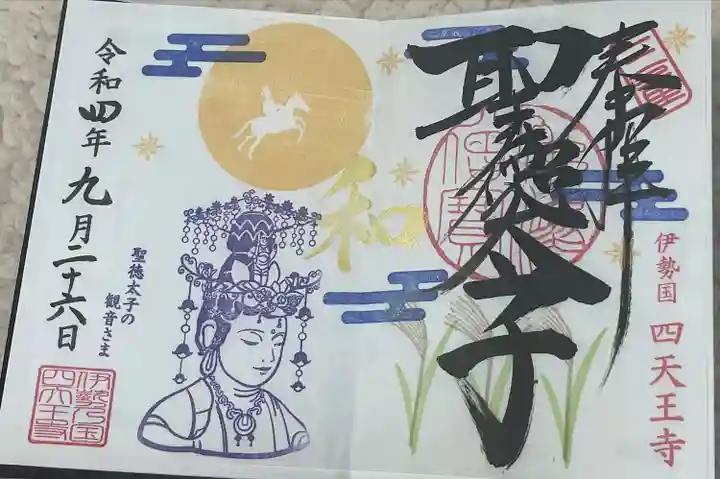 奉拝
聖徳太子
伊勢国 四天王寺
和
令和四年九月二十六日
聖徳太子の
観音さま
伊勢之国
四天王寺